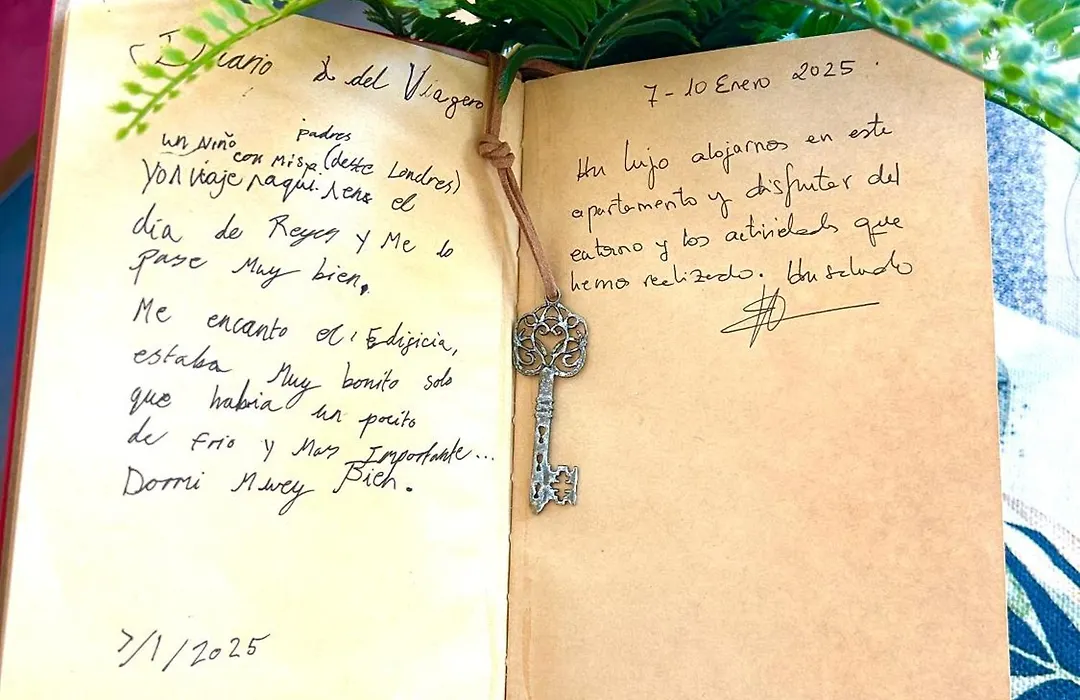 Diario del Viagero
un Niño padres
con mis (deste Londres)
Yo viaje aquí. el
día de Reyes y Me lo
pase Muy bien.
Me encanto el Edigicia,
estaba Muy bonito solo
que habia un pocito
de Frio y Mas Importante...
Dormi Muey Bien.
7/1/2025
7-10 Enero 2025.
Un lujo alojarnos en este
apartamento y disfrutar del
entorno y los actividads que
hemos realizado. Un saludo